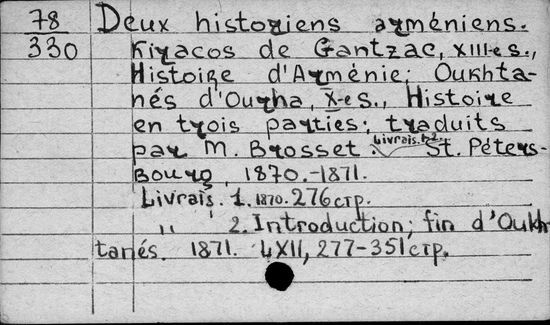 78
330
Deux historiens arméniens.
Kiracos de Gantzac, XIII-e s.,
Histoire d'Arménie; Oukhta-
nés d'Ourha, X-e s., Histoire
en trois parties; traduits
par M. Brosset. Livrais. 1-2. St. Péters-
Bourg, 1870.-1871.
Livrais. 1. 1870. 276 стр.
" " 2. Introduction; fin d'Oukh
tanés. 1871. 4XII, 277-351 стр.